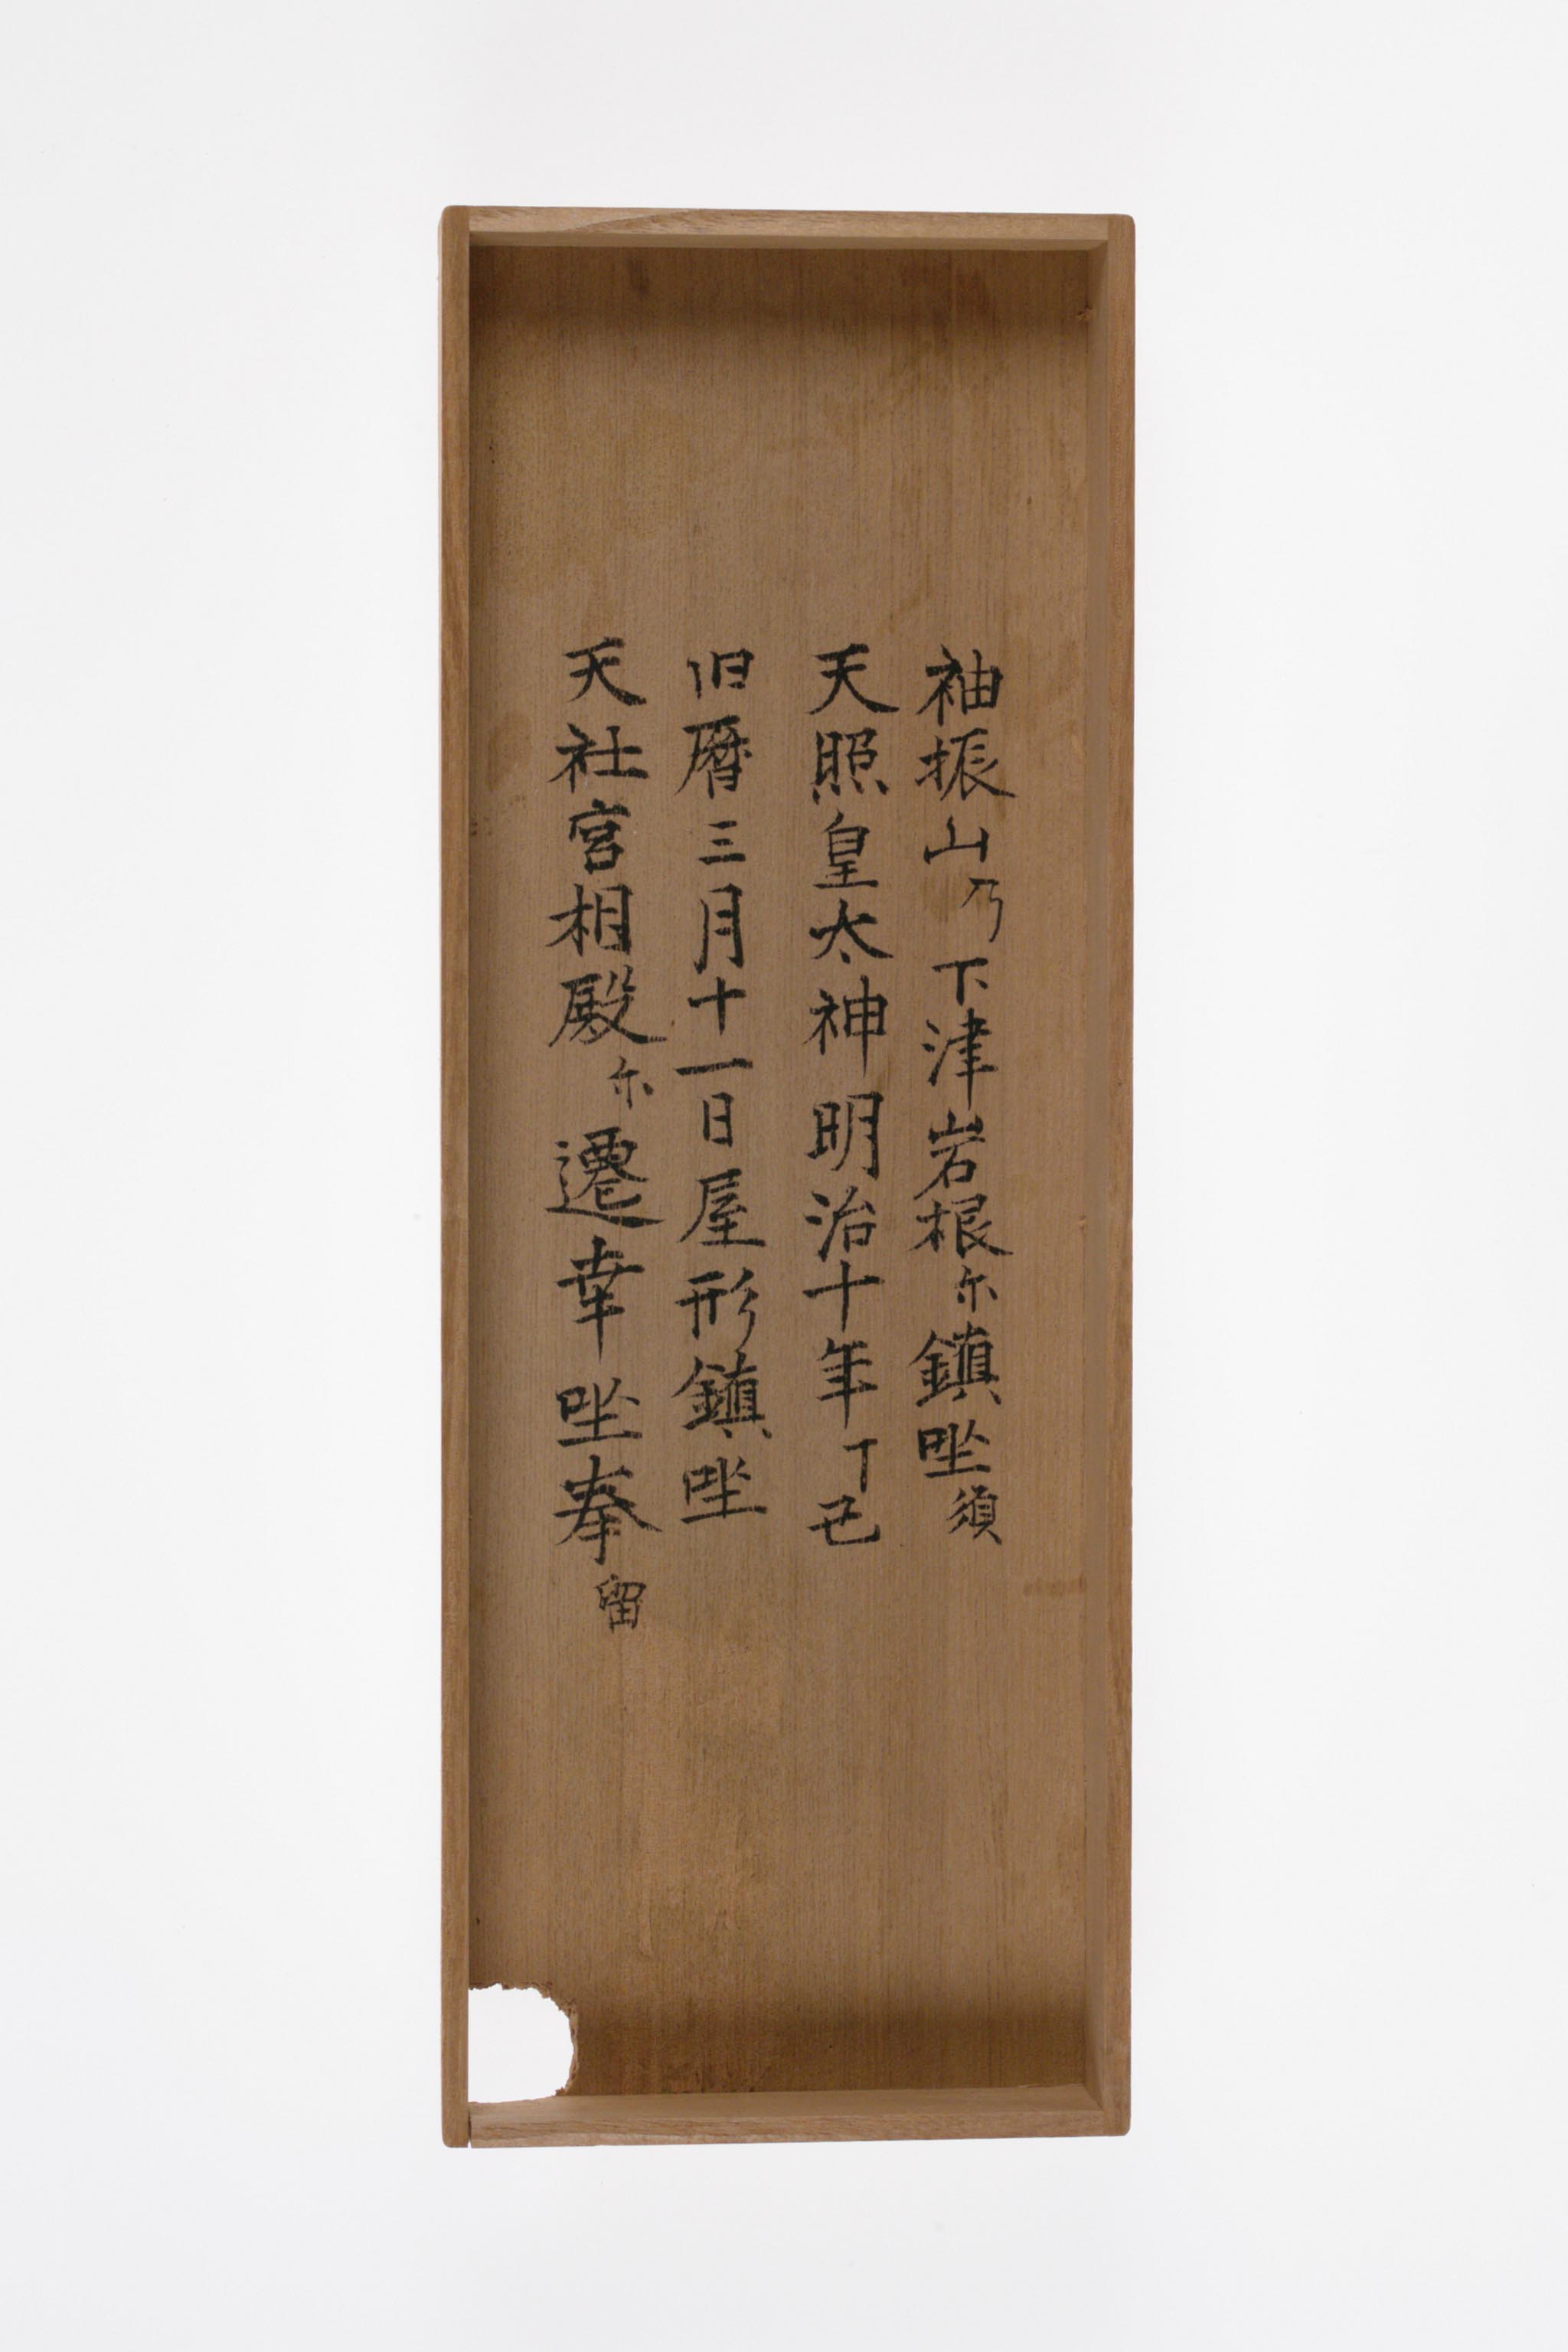 袖振山乃下津岩根尓鎮坐須
天照皇太神明治十年丁丑
旧暦三月十一日屋形鎮坐
天社宮相殿尓遷幸坐奉留